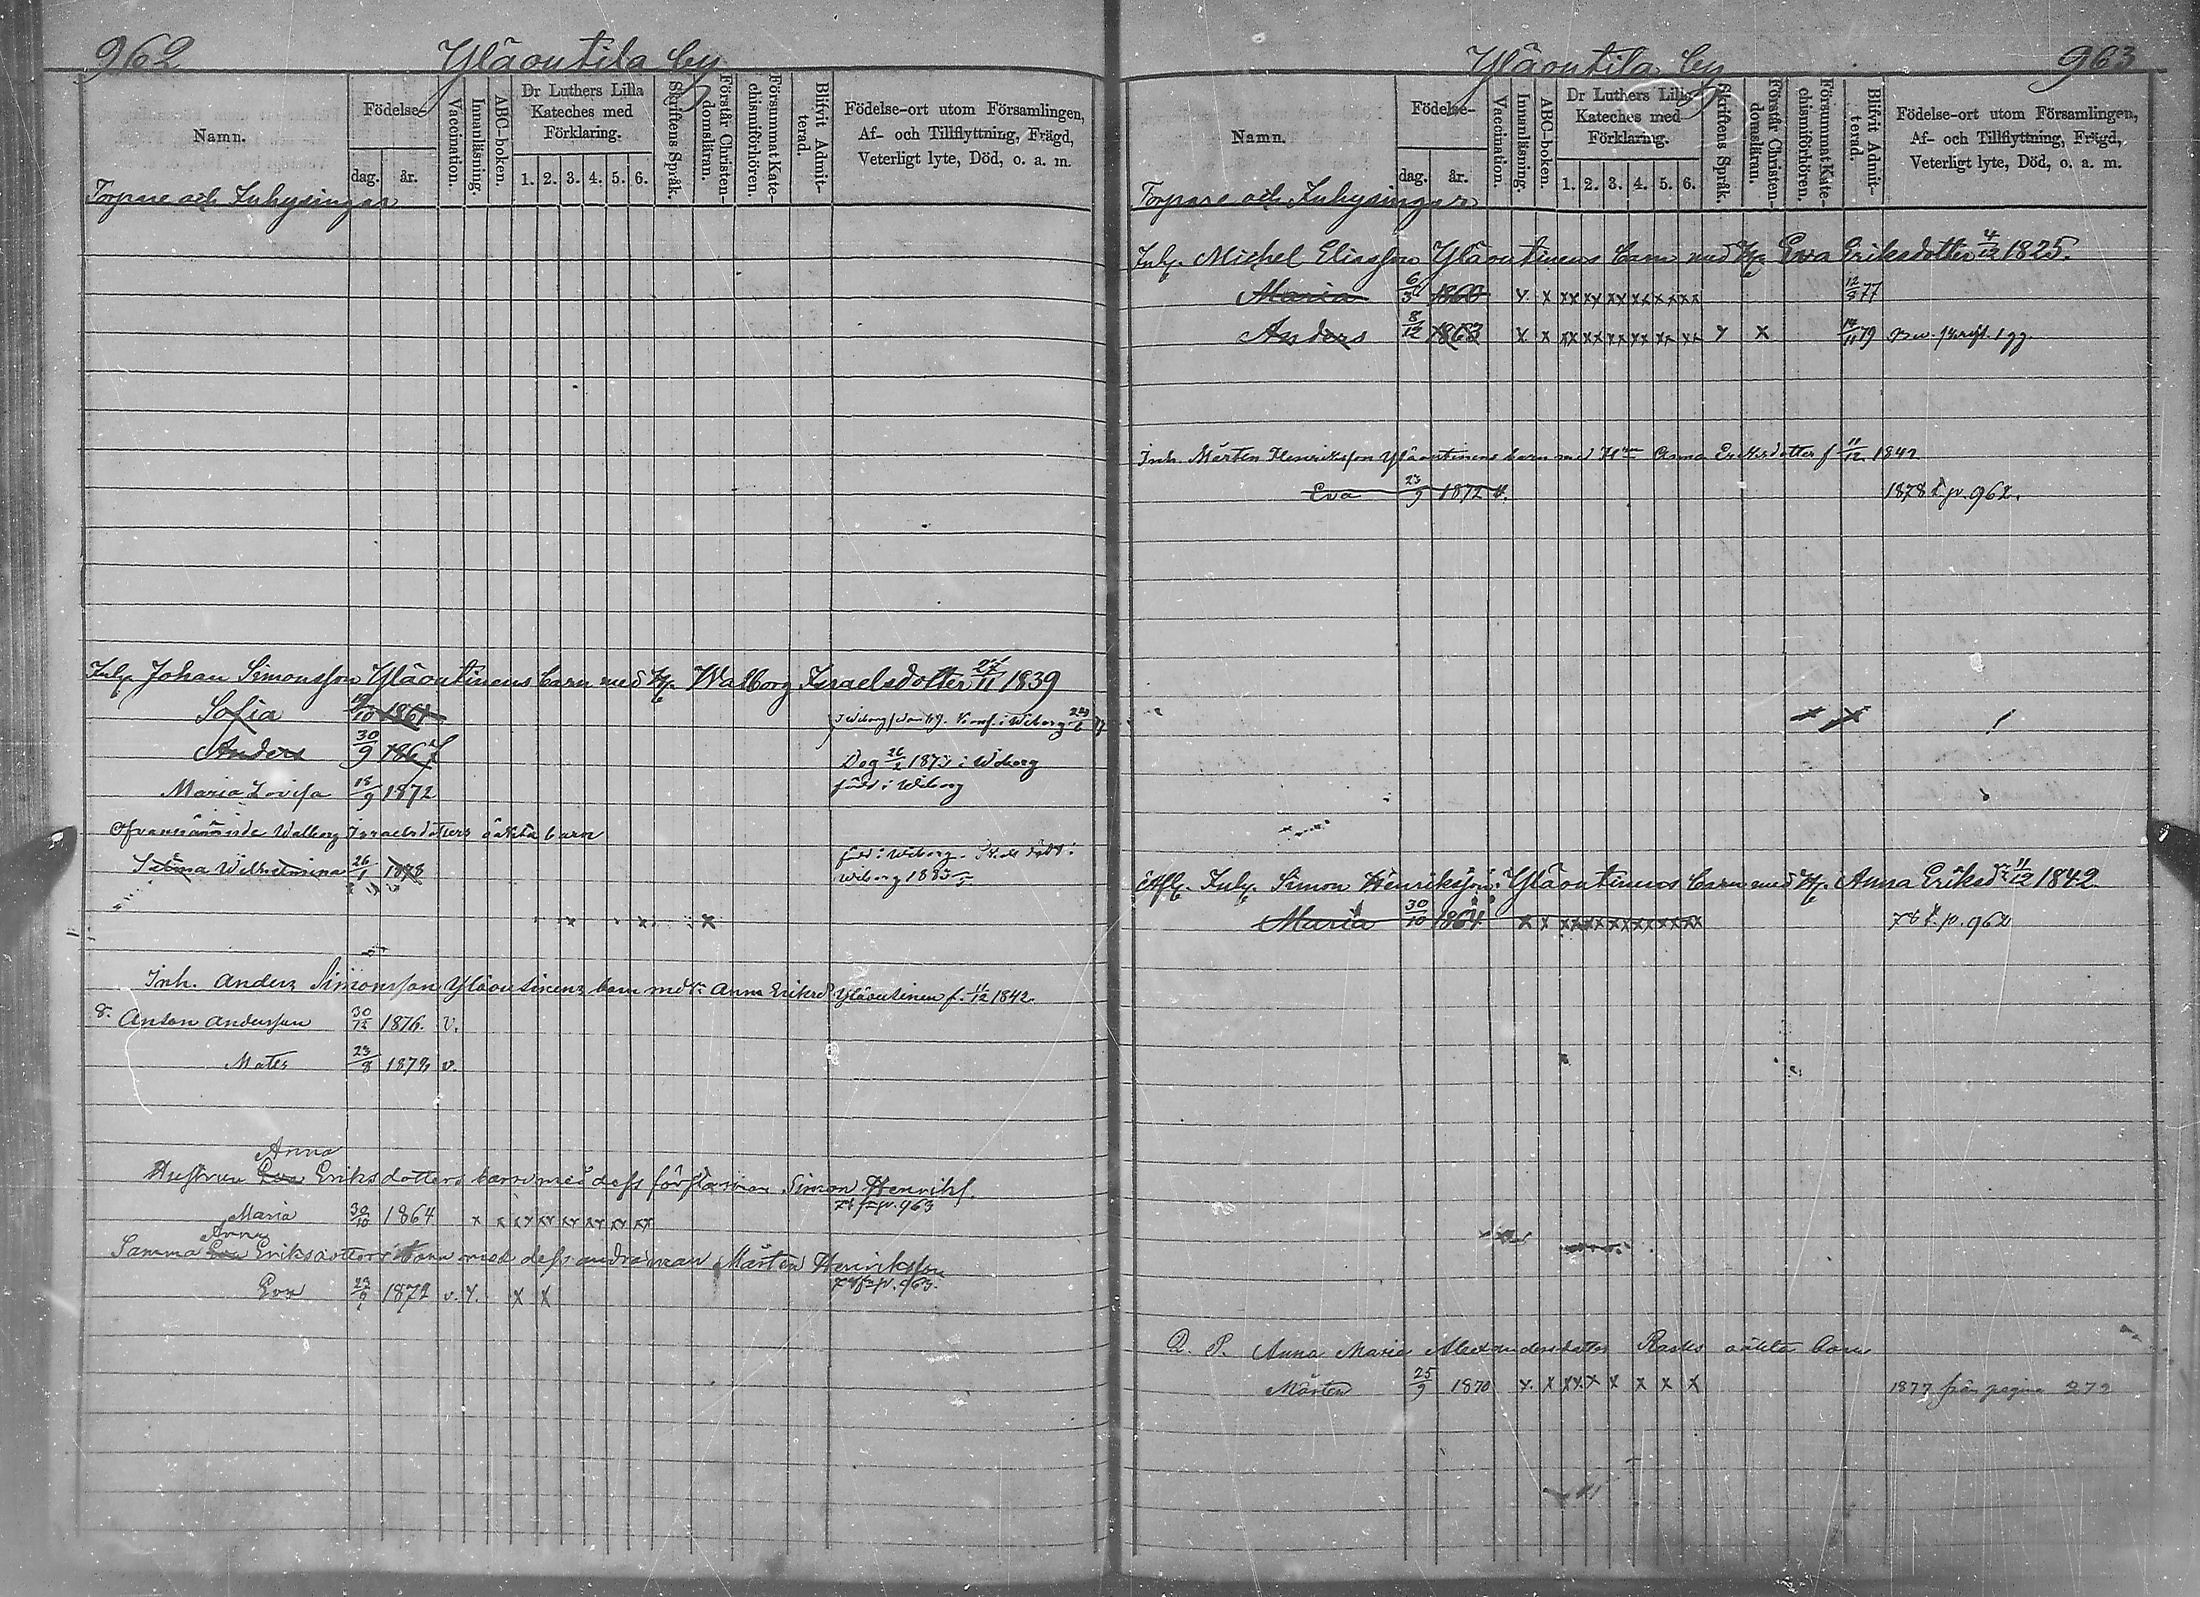 962 Yläoutila by
Namn. Födelse- dag. år. Vaccination. Innanläsning. ABC-boken. Dr Luthers Lilla Kateches med Förklaring. 1. 2. 3. 4. 5. 6. Skriftens Språk. Förstår Christendomsläran. Försummat Katechismiförhören. Blifvit Admitterad. Födelse-ort utom Församlingen, Af- och Tillflyttning, Frägd, Veterligt lyte, Död, o. a. m.
Torpare och Inhysingar
Inh. Johan Simonsson Yläoutinens barn med H. Walborg Israelsdotter 27/11 1839
Sofia /10 1861 i Wiborg
Anders 30/9 1867 Dog 26/2 187 i Wiborg
Maria Lovisa 18/9 1872 född i Wiborg
Ofvannämnde Walborg Israelsdotters oäkta barn
Selma Wilhelmina 26/1 1878 född i Wiborg.
Wiborg 1885
Inh. Anders Simonsson Yläoutinens barn med Anna Eriksd. Yläoutinen f. 11/12 1842.
8. Anton Andersson 30/12 1876. v.
Mats 23/8 1878 v.
Anna
Hustrun Eva Eriksdotters barn med dess första man Simon Henriks.
Maria 30/10 1864 x x xx xx xx xx xx xx 78 fr. p. 963
Anna
Samma Eva Eriksdotters barn med dess andra man Mårten Henriksson
Eva 23/9 1872 v. x. x x 78 fr. p. 963.
Yläoutila by 963
Namn. Födelse- dag. år. Vaccination. Innanläsning. ABC-boken. Dr Luthers Lilla Kateches med Förklaring. 1. 2. 3. 4. 5. 6. Skriftens Språk. Förstår Christendomsläran. Försummat Katechismiförhören. Blifvit Admitterad. Födelse-ort utom Församlingen, Af- och Tillflyttning, Frägd, Veterligt lyte, Död, o. a. m.
Torpare och Inhysingar
Inh. Michel Eliasson Yläoutinens barn med H. Eva Eriksdotter 4/12 1825.
Maria 6/3 1860 x x xx xx xx xx xx xx 77
Anders 8/12 1863 x x xx xx xx xx xx xx x x 14/11 79
Inh. Mårten Henriksson Yläoutinens barn med H Anna Eriksdotter f 11/12 1842
Eva 23/9 1872 v. 1878 t. p. 962.
Afl. Inh. Simon Henriksson Yläoutinens barn med H. Anna Eriksdr 11/12 1842
Maria 30/10 1864 x x xx xx xx xx xx xx 78 t. p. 962
Q. P. Anna Maria Alexandersdotter Rasks oäkta barn
Mårten 25/9 1870 x. x xx x x x x x 1877 från pagina 272